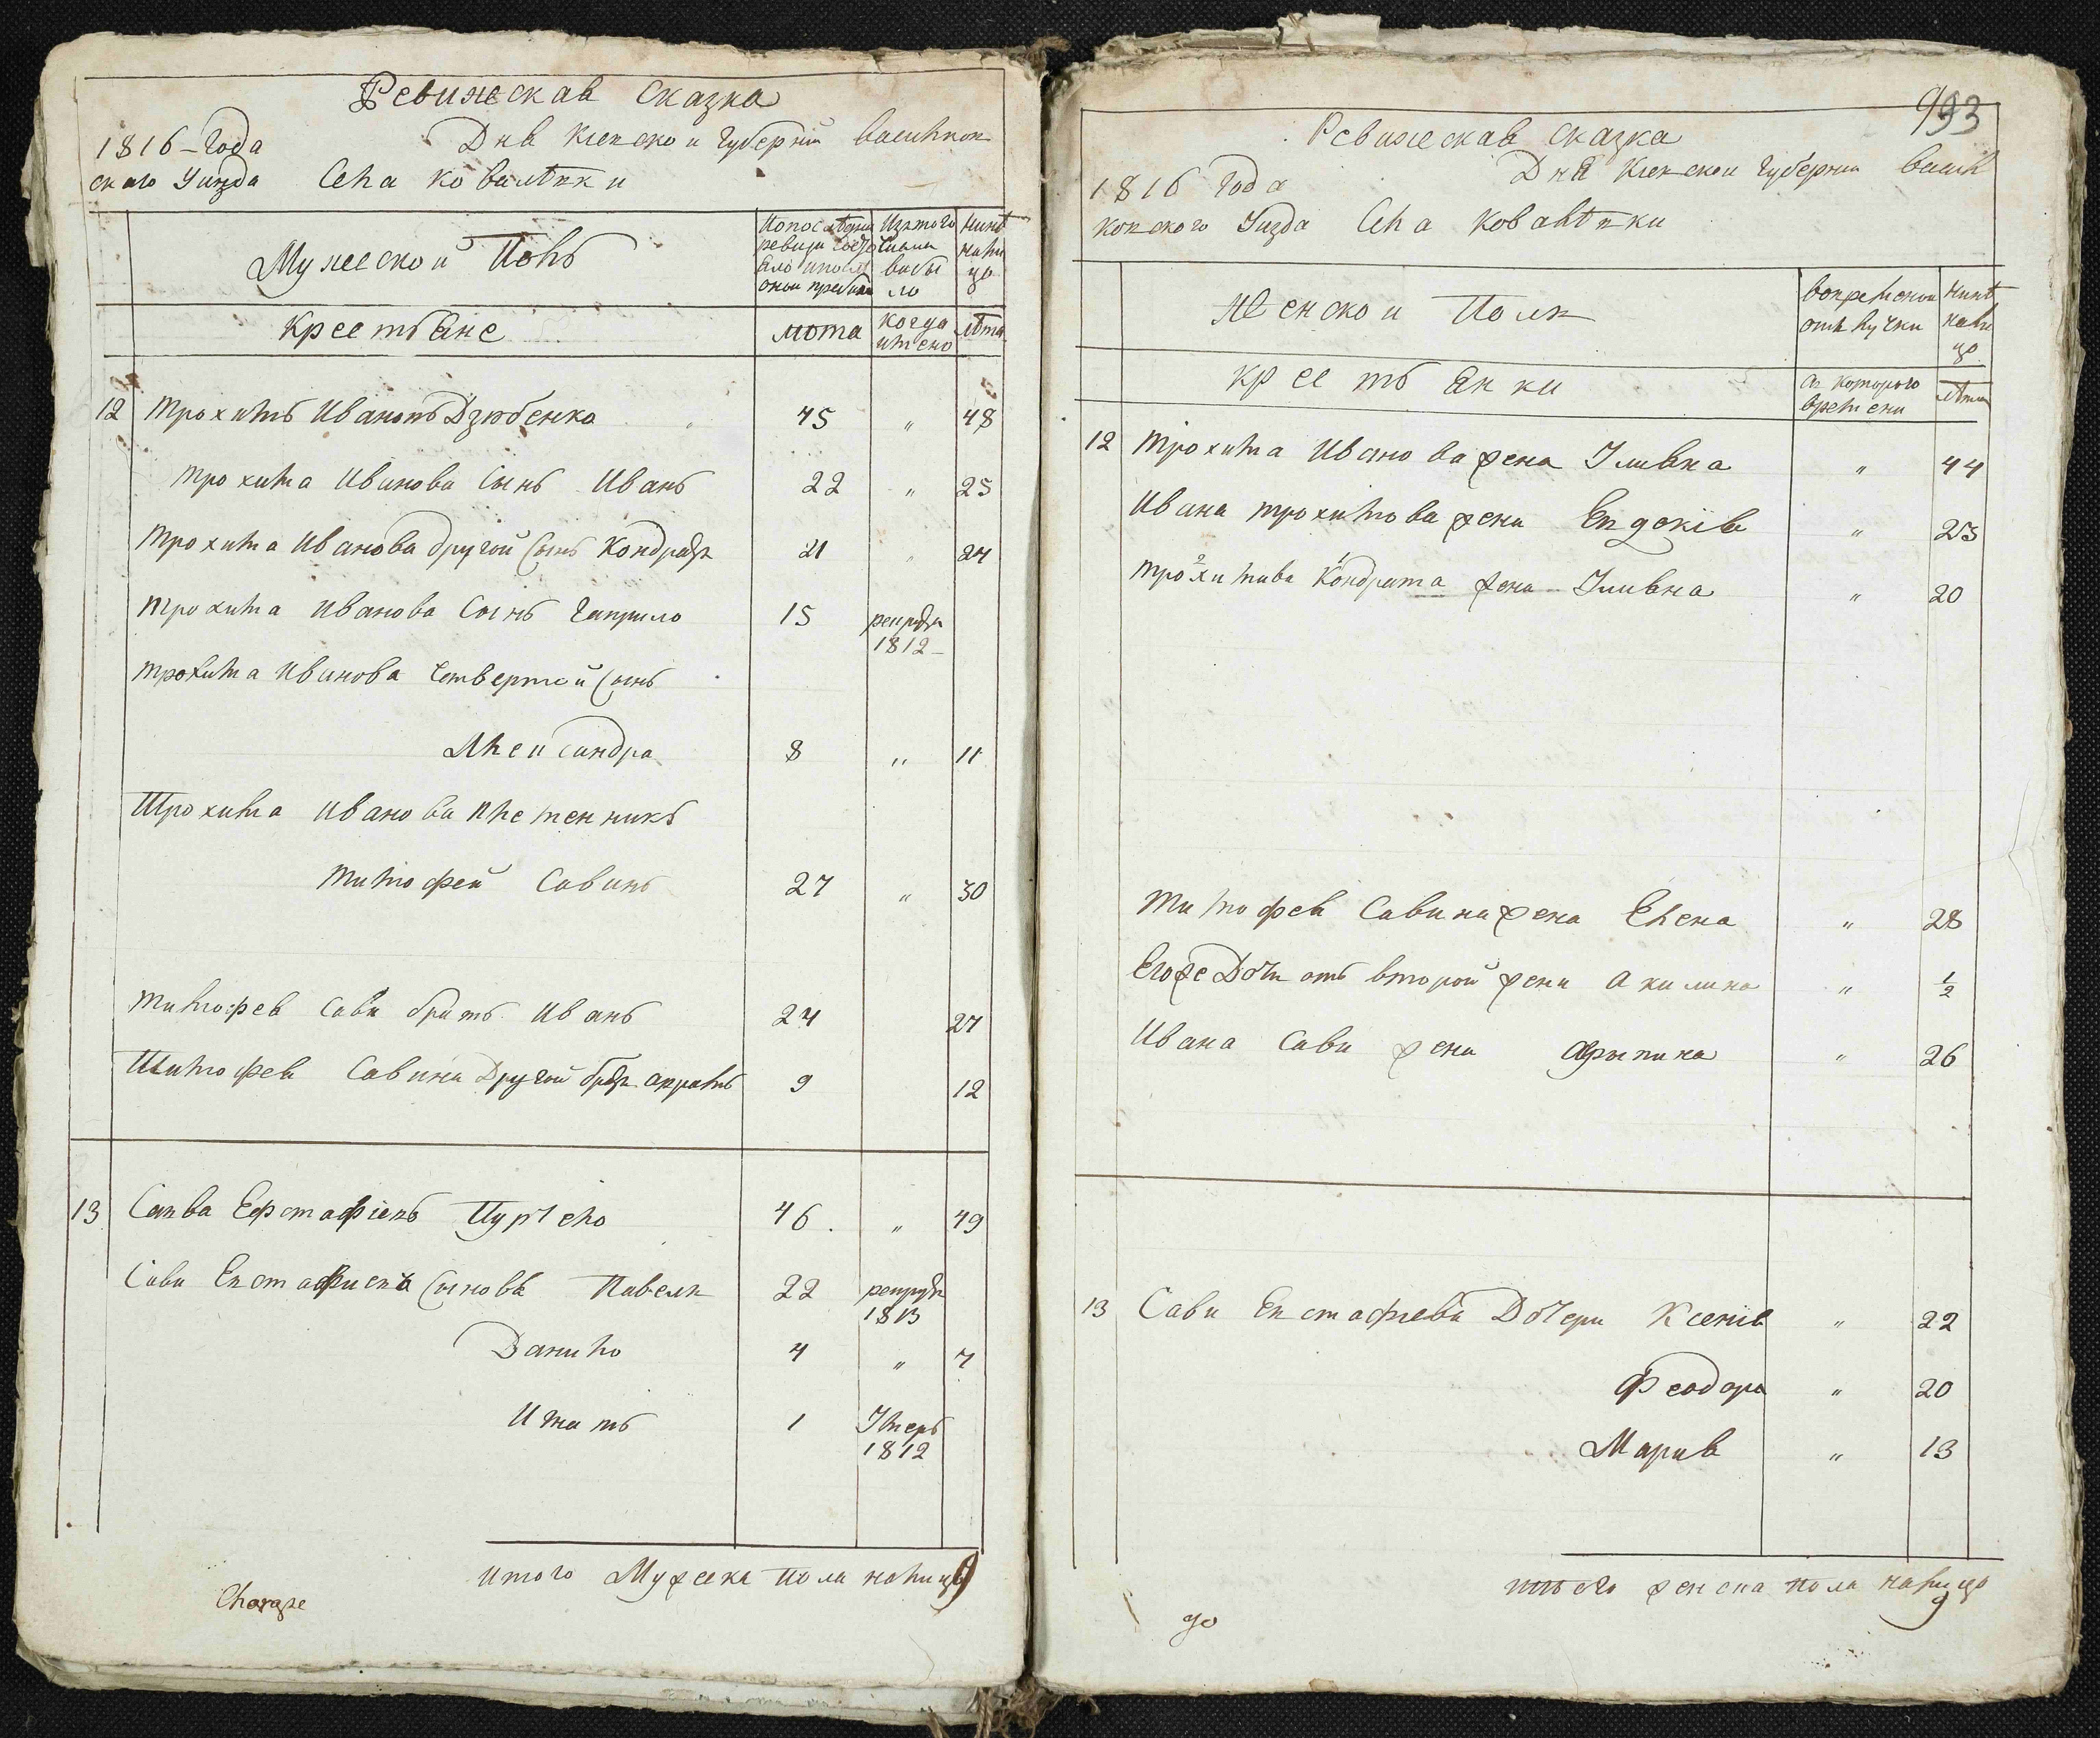 Ревижская сказка
1816 Года Дня Киевской Губернии Васильков
ского Уизда Села Ковалѣвки
Мужеской Полъ
По последней ревизи состояло и после оной прибыло
Изътого числа выбыло
Нинѣ налицо
Крестьяне
Лѣта
когда имено
Лѣта
12 Трохимъ Ивановъ Дзюбенко 45 " 48
Трохима Иванова Сынъ Иванъ 22 " 25
Трохима Иванова другой Сынъ Кондратъ 21 " 24
Трохима Иванова Сынъ Гаврило 15 рекрутъ
1812
Трохима Иванова Четвертой Сынъ
Александра 8 " 11
Трохима Иванова племенникъ
Тимофей Савинъ 27 " 30
Тимофея Сави братъ Иванъ 24 27
Тимофея Савина Другой братъ 9 12
13 Савва Ефстафіевъ 46 " 49
Сави Евстафиева Сыновя Павелъ 22 рекрутъ
1813
Данило 4 " 7
Игнатъ 1 Умеръ
1812
итого Мужеска пола налицо 9
993
Ревижская сказка
1816 Года Дня Киевской Губернии Василь
ковского Уизда Села Ковалѣвки
Женской Полъ
Вовремѣной отълучки
Нинѣ налицо
Крестьянки
Съ которого времени
Лѣта
12 Трохима Иванова жена Уливна " 44
Ивана Трохимова жена Евдокія " 23
Трохимива Кондрата жена Уливна " 20
Тимофея Савина жена Елена " 28
Егоже Дочь отъ второй жени Акилина " 1/2
Ивана Сави жена " 26
13 Сави Евстафиева Дочери Ксенія " 22
Феодора " 20
Мария " 13
женска пола налицо
9